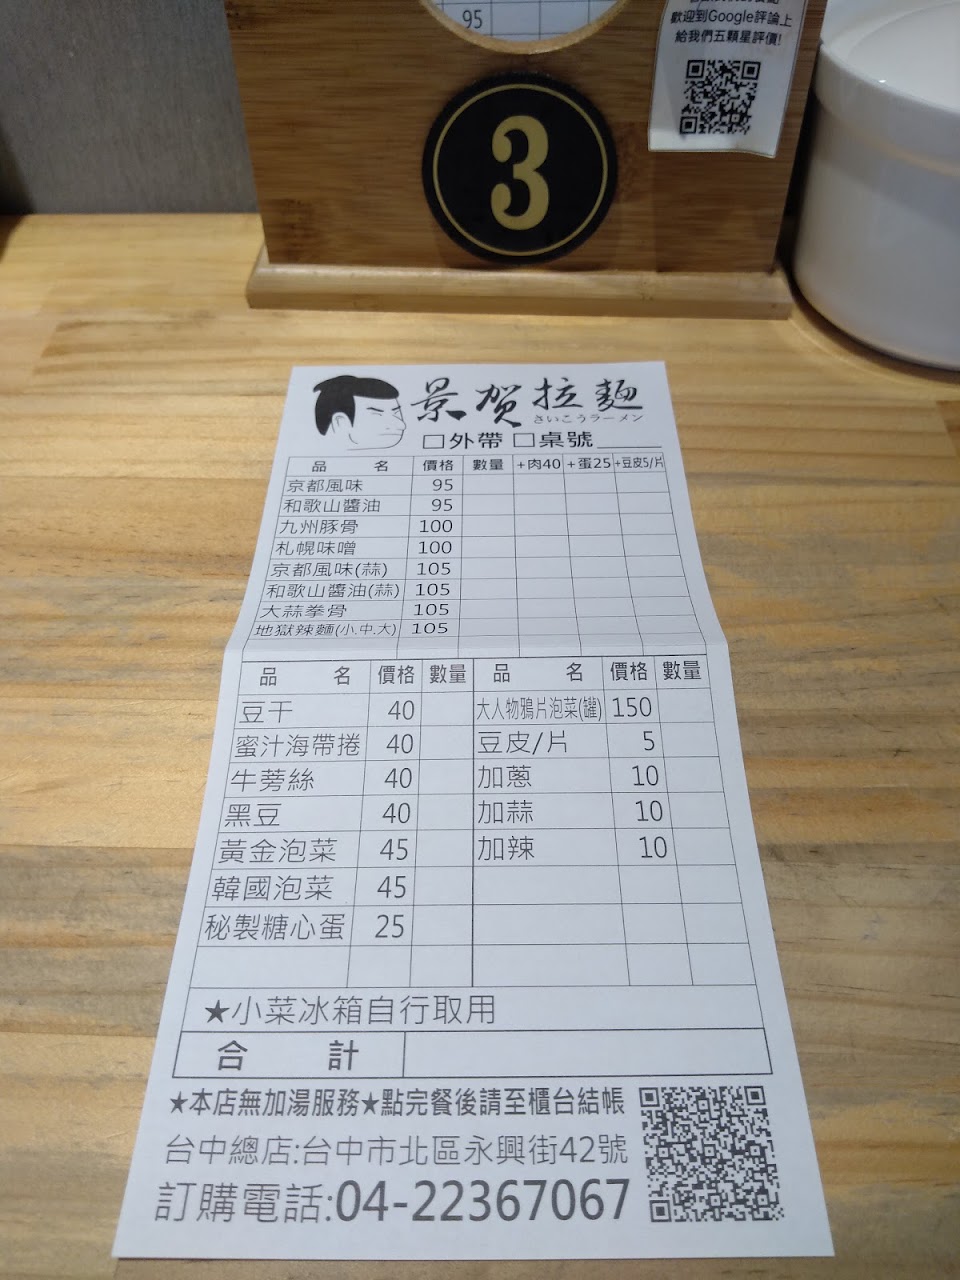 95
歡迎到Google評論上
給我們五顆星評價!
3
景賀拉麵
さいこうラーメン
□外帶 □桌號
品名 價格 數量 +肉40 +蛋25 +豆皮5/片
京都風味 95
和歌山醬油 95
九州豚骨 100
札幌味噌 100
京都風味(蒜) 105
和歌山醬油(蒜) 105
大蒜拳骨 105
地獄辣麵(小.中.大) 105
品名 價格 數量 品名 價格 數量
豆干 40 大人物鴉片泡菜(罐) 150
蜜汁海帶捲 40 豆皮/片 5
牛蒡絲 40 加蔥 10
黑豆 40 加蒜 10
黃金泡菜 45 加辣 10
韓國泡菜 45
秘製糖心蛋 25
★小菜冰箱自行取用
合計
★本店無加湯服務★點完餐後請至櫃台結帳
台中總店:台中市北區永興街42號
訂購電話:04-22367067